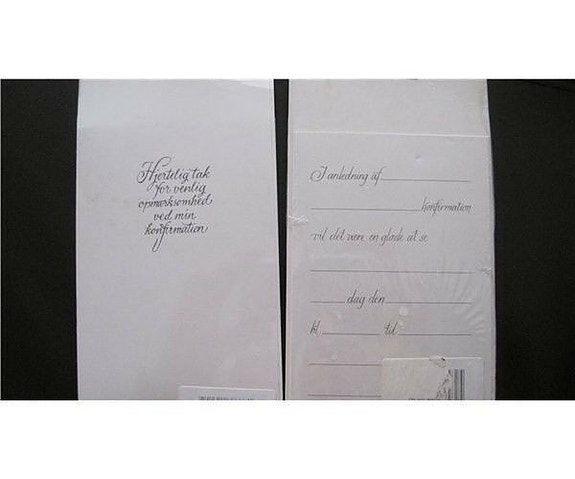 Hjertelig tak
for venlig
opmærksomhed
ved min
konfirmation
I anledning af
konfirmation
vil det være en glæde at se
dag den
kl. til